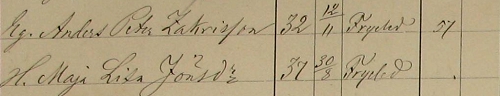 Eg. Anders Peter Zakrisson 32 12/11 Fryeled 57
H. Maja Lisa Jönsdr 37 30/8 Fryeled